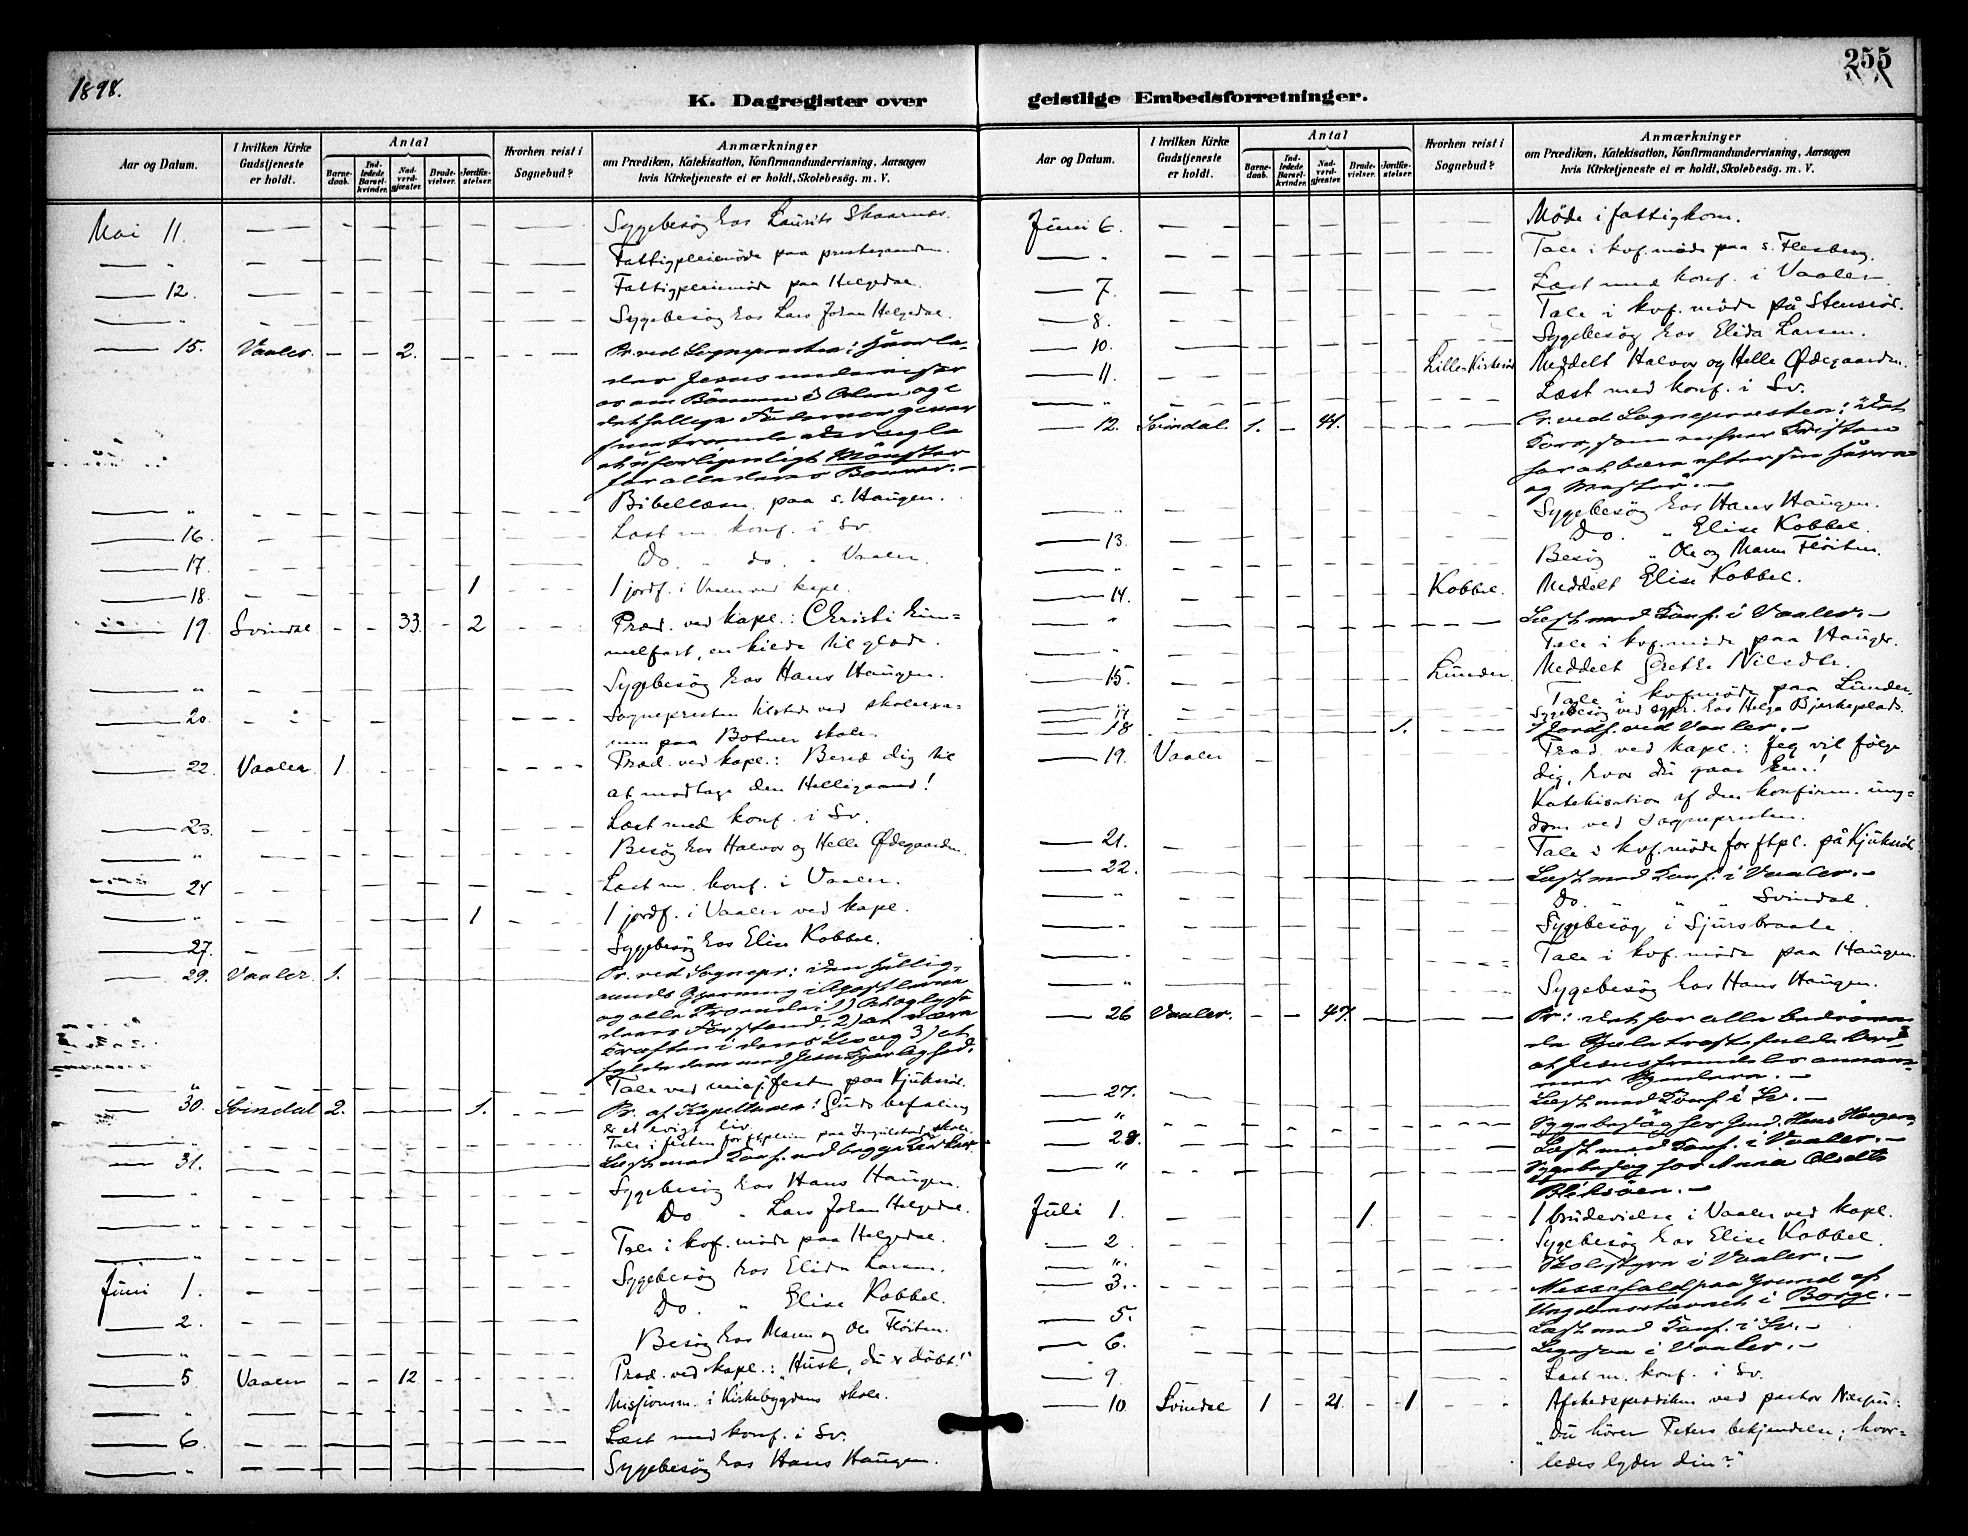 1898.
255
K. Dagregister over geistlige Embedsforretninger.
Aar og Datum.
I hvilken Kirke Gudstjeneste er holdt.
Antal
Barnedaab.
Indledede Barselkvinder.
Nadverdgjæster.
Brudevielser.
Jordfæstelser.
Hvorhen reist i Sognebud?
Anmærkninger
om Prædiken, Katekisation, Konfirmandundervisning, Aarsagen
hvis Kirketjeneste ei er holdt, Skolebesøg. m. V.
Mai 11. Sygebesøg hos Laurits Skaarnæs.
" Fattigpleiemøde paa prestegaarden.
12. Fattigpleiemøde paa Helgedal.
" Sygebesøg hos Lars Johan Helgedal.
15. Vaaler. 2. Pr. ved Sognepresten:
Jesus underviser
os om Bønnen
Mønster
for alle deres Bønner.
" Bibellæsn. paa s. Haugen.
16. Læst m. konf. i Sv.
17. Do. " do. " Vaaler.
18. 1 1 jordf. i Vaaler ved kapl.
19. Svindal 33. 2 Præd. ved kapl.: Christi him-
melfart, en kilde til glæde.
" Sygebesøg hos Hans Haugen.
20. Sognepresten tilstede ved skoleexa-
men paa Botner skole.
22. Vaaler 1. Præd. ved kapl.: Bered dig til
at modtage den Helligaand!
23. Læst med konf. i Sv.
" Besøg hos Halvor og Helle Ødegaarden.
24 Læst m. konf. i Vaaler.
" 1 1 jordf. i Vaaler ved kapl.
27. Sygebesøg hos Elise Kobbel.
29. Vaaler. 1. Pr. ved Sognepr.: Den Hellig-
aands Gjerning i Apostlerne
og alle Troende: 1)
deres Forstand, 2) at være
Kraften i deres Liv og 3) at
fylde dem med Jesu Kjærlighed.
" Tale ved misj.festen paa Kjuksrød.
30. Svindal 2. 1. Pr. af Kapellanen: Guds befaling
er et evigt liv.
" Tale i festen for ftpleien paa skole.
31. Læst med Konf. ved begge Kirker.
" Sygebesøg hos Hans Haugen.
" Do " Lars Johan Helgedal.
" Tale i kvf. møde paa Helgedal.
Juni 1. Sygebesøg hos Elida Larsen.
2. Do. " Elise Kobbel.
" Besøg hos Maren og Ole Fløiten.
5. Vaaler 12 Præd. ved kapl.: "Husk, du er døbt!"
" Misjonsm. i Kirkebygdens skole.
6. Læst med konf. i Sv.
" Sygebesøg hos Hans Haugen.
Aar og Datum.
I hvilken Kirke Gudstjeneste er holdt.
Antal
Barnedaab.
Indledede Barselkvinder.
Nadverdgjæster.
Brudevielser.
Jordfæstelser.
Hvorhen reist i Sognebud?
Anmærkninger
om Prædiken, Katekisation, Konfirmandundervisning, Aarsagen
hvis Kirketjeneste ei er holdt, Skolebesøg. m. V.
Juni 6. Møde i fattigkom.
" Tale i kvf. møde paa s. Flesberg.
7. Læst med konf. i Vaaler.
8. Tale i kvf. møde på Stensrød.
10. Sygebesøg hos Elida Larsen.
11. Lille-Kirkerød Meddelt Halvor og Helle Ødegaarden.
" Læst med konf. i Sv.
12. Svindal. 1. 41. Pr. ved Sognepresten: Det
Kors, som enhver Kristen
har at bære efter sin Herre
og Mester.
" Sygebesøg hos Hans Haugen.
13. Do. " Elise Kobbel.
" Besøg " Ole og Maren Fløiten.
14. Kobbel. Meddelt Elise Kobbel.
" Læst med Konf. i Vaaler.
" Tale i kvf. møde paa Hauger.
15. Lunder. Meddelt Grethe Nilsdtr.
Tale i kvf. møde paa Lunder.
17 Sygebesøg ved sgpr. hos Helga Bjerkeplads.
18 1. 1 Jordf. ved Vaaler.
19. Vaaler Præd. ved kapl.: Jeg vil følge
dig, hvor du gaar hen!
Katekisation af den konfirm. ung-
dom ved Sognepresten.
21. Tale i kvf. møde for ftpl. på Kjuksrød
22. Læst med Konf. i Vaaler.
" Do. " " Svindal.
" Sygebesøg i Sjursbraate.
" Tale i kvf. møde paa Haugen.
" Sygebesøg hos Hans Haugen.
26 Vaaler. 47. Pr.: Det for alle bedrøve-
de Sjæle trøstefulde Ord
at Jesus fremdeles annam-
mer Syndere.
27. Læst med Konf. i Sv.
" Sygebesøg hos Hans Haugen.
28. Læst med Konf. i Vaaler.
" Sygebesøg hos Anna Olsdtr
Bliksøen.
Juli 1. 1. 1 brudevielse i Vaaler ved kapl.
2. Sygebesøg hos Elise Kobbel.
" Skolestyre i Vaaler.
3. Messefald paa Grund af
Ungdomsstævnet i Borge.
5. Læst med Konf. i Sv.
6. Ligesaa i Vaaler.
9. Læst m. konf. i Sv.
10. Svindal 1 21. 1 Afskedsprædiken ved pastor
"Du hører Peters bekjendelse; hvor-
ledes lyder din?"